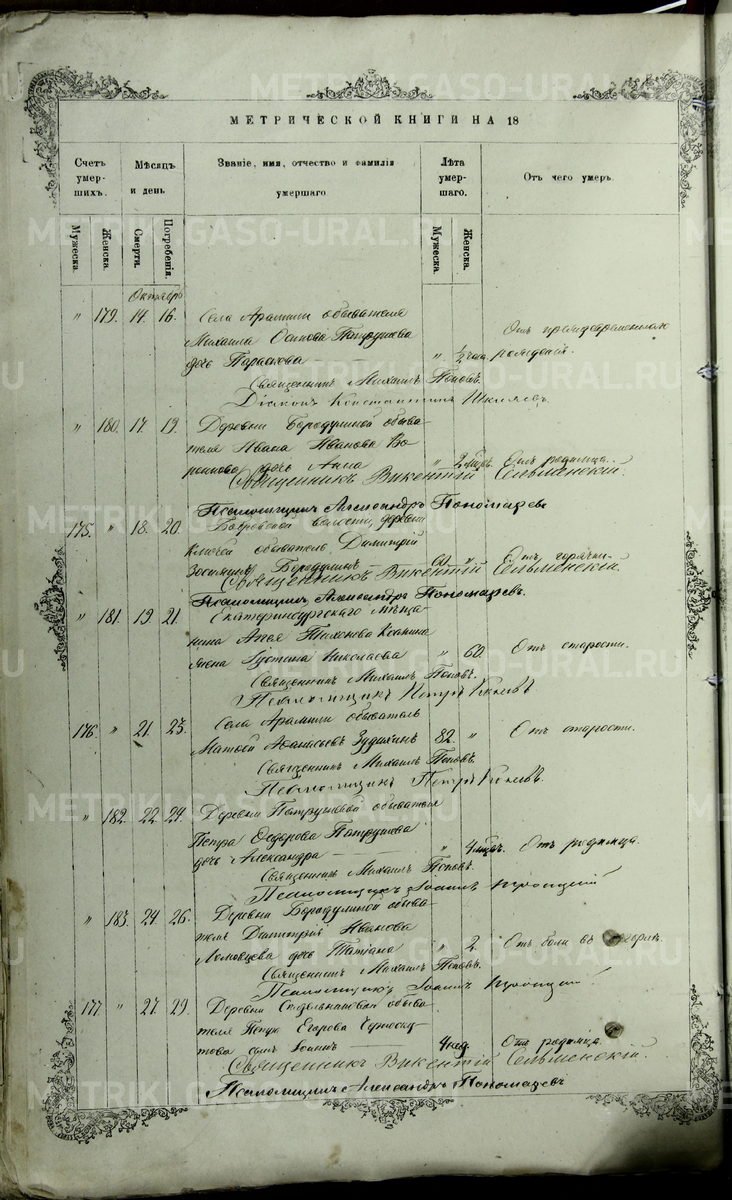 METRIK.GASO-URAL.RU
МЕТРИЧЕСКОЙ КНИГИ НА 18
Счетъ умершихъ.
Мѣсяцъ и день
Званіе, имя, отчество и фамилія умершаго.
Лѣта умершаго.
Отъ чего умеръ.
Мужеска.
Женска.
Смерти.
Погребенія.
Мужеска.
Женска.
Октябрь
" 179. 14. 16. Села Арамили обывателя
Михаила Осипова Патрушева
дочь Параскева " ½ часа. Отъ преждевременнаго рожденія.
Священникъ Михаилъ Поповъ.
Діаконъ Константинъ
" 180. 17. 19. Деревни Бородулиной обыва-
теля Ивана Иванова Во-
ронкова дочь Анна " 2 мѣс. Отъ родимца.
Священникъ Викентій Сельменскій.
Псаломщикъ Александръ Пономаревъ
175. " 18. 20. волости, деревни
Ключей обыватель Димитрій
Зосиминъ Бородулинъ 60 " Отъ горячки.
Священникъ Викентій Сельменскій.
Псаломщикъ Александръ Пономаревъ.
" 181. 19. 21. Екатеринбургскаго мѣща-
нина Тихонова
жена Іустина Николаева " 60. Отъ старости.
Священникъ Михаилъ Поповъ.
Псаломщикъ Петръ
176. " 21. 23. Села Арамили обыватель
Матвей Аѳанасьевъ 82. " Отъ старости.
Священникъ Михаилъ Поповъ.
Псаломщикъ Петръ
" 182. 22. 24. Деревни Патрушевой обывателя
Петра Ѳедорова Патрушева
дочь Александра " 4 мѣсяц. Отъ родимца.
Священникъ Михаилъ Поповъ.
Псаломщикъ Іоаннъ Троицкій
" 183. 24. 26. Деревни Бородулиной обыва-
теля Димитрія Иванова
Ломовцева дочь Татіана " 2. Отъ боли въ горлѣ.
Священникъ Михаилъ Поповъ.
Псаломщикъ Іоаннъ Троицкій
177. " 27. 29. Деревни обыва-
теля Петра Егорова
сынъ Іоаннъ 4 нед. Отъ родимца.
Священникъ Викентій Сельменскій.
Псаломщикъ Александръ Пономаревъ